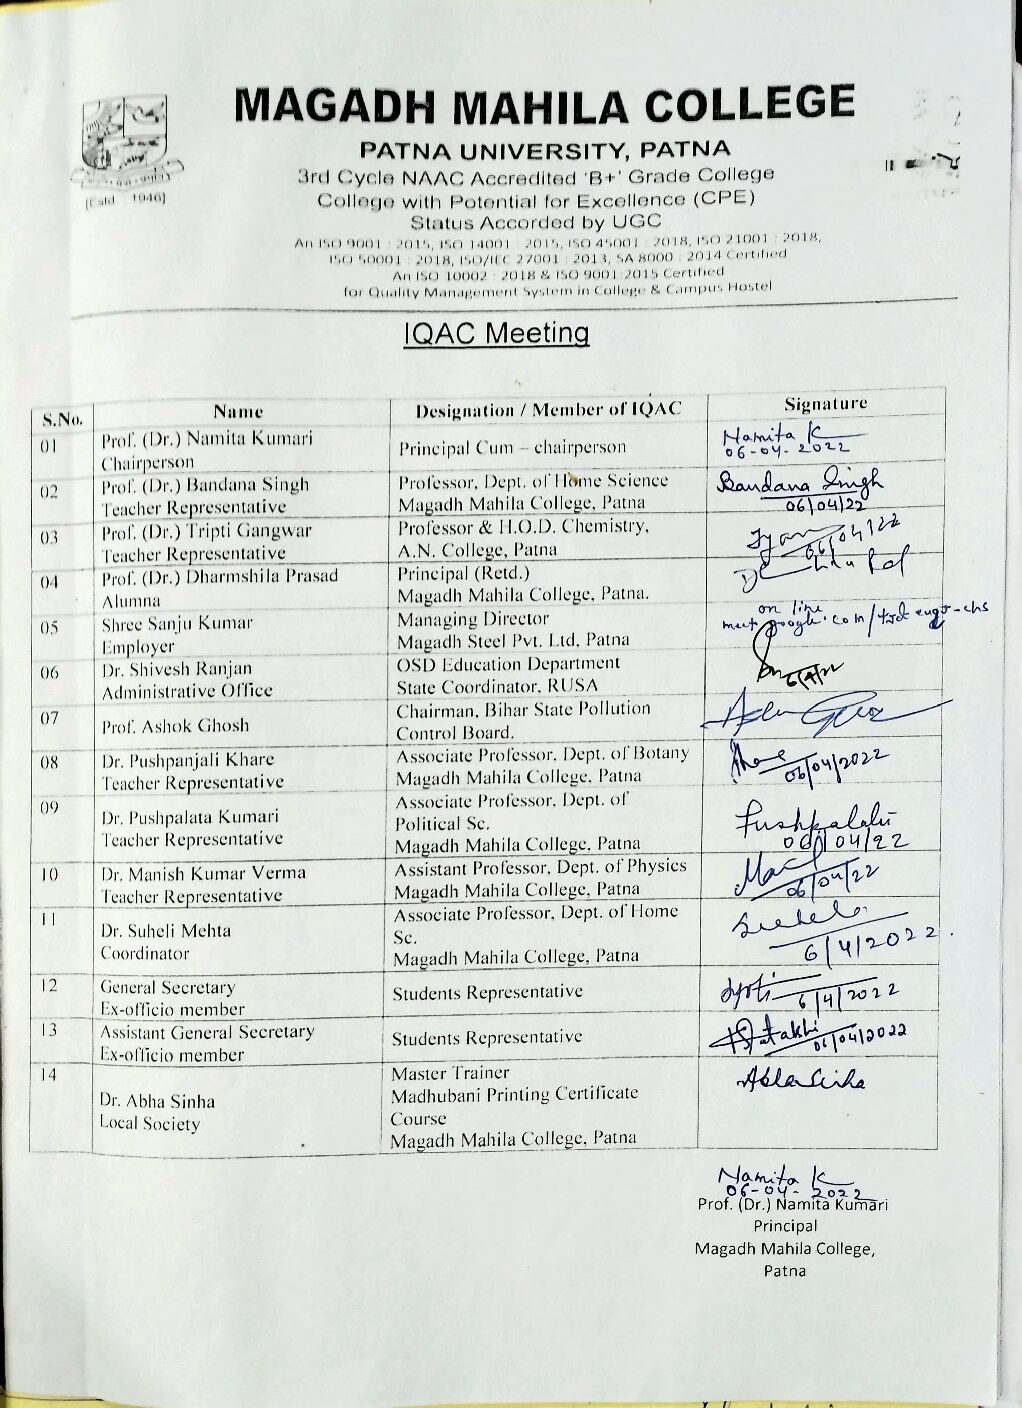 MAGADH MAHILA COLLEGE
PATNA UNIVERSITY, PATNA
3rd Cycle NAAC Accredited 'B+' Grade College
College with Potential for Excellence (CPE)
Status Accorded by UGC
An ISO 9001 : 2015, ISO 14001 : 2015, ISO 45001 : 2018, ISO 21001 : 2018,
ISO 50001 : 2018, ISO/IEC 27001 : 2013, SA 8000 : 2014 Certified
An ISO 10002 : 2018 & ISO 9001:2015 Certified
for Quality Management System in College & Campus Hostel
(Estd. 1946)
IQAC Meeting
S.No. Name Designation / Member of IQAC Signature
01 Prof. (Dr.) Namita Kumari
Chairperson
Principal Cum – chairperson
Namita K
06-04-2022
02 Prof. (Dr.) Bandana Singh
Teacher Representative
Professor, Dept. of Home Science
Magadh Mahila College, Patna
Bandana Singh
06/04/22
03 Prof. (Dr.) Tripti Gangwar
Teacher Representative
Professor & H.O.D. Chemistry,
A.N. College, Patna
06/04/22
04 Prof. (Dr.) Dharmshila Prasad
Alumna
Principal (Retd.)
Magadh Mahila College, Patna.
05 Shree Sanju Kumar
Employer
Managing Director
Magadh Steel Pvt. Ltd, Patna
on line
meet.google.com/
06 Dr. Shivesh Ranjan
Administrative Office
OSD Education Department
State Coordinator, RUSA
6/4/22
07 Prof. Ashok Ghosh
Chairman, Bihar State Pollution
Control Board.
08 Dr. Pushpanjali Khare
Teacher Representative
Associate Professor, Dept. of Botany
Magadh Mahila College, Patna
06/04/2022
09 Dr. Pushpalata Kumari
Teacher Representative
Associate Professor, Dept. of
Political Sc.
Magadh Mahila College, Patna
Pushpalata
06/04/22
10 Dr. Manish Kumar Verma
Teacher Representative
Assistant Professor, Dept. of Physics
Magadh Mahila College, Patna
06/04/22
11 Dr. Suheli Mehta
Coordinator
Associate Professor, Dept. of Home
Sc.
Magadh Mahila College, Patna
6/4/2022.
12 General Secretary
Ex-officio member
Students Representative
Jyoti
6/4/2022
13 Assistant General Secretary
Ex-officio member
Students Representative
06/04/2022
14 Dr. Abha Sinha
Local Society
Master Trainer
Madhubani Printing Certificate
Course
Magadh Mahila College, Patna
Abha Sinha
Namita K
06-04-2022
Prof. (Dr.) Namita Kumari
Principal
Magadh Mahila College,
Patna